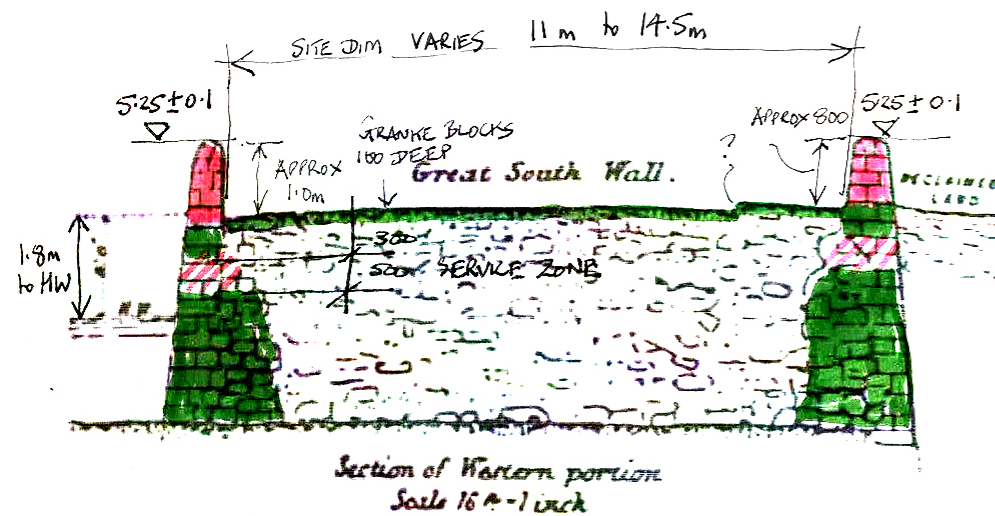 SITE DIM VARIES 11m to 14.5m
5.25 ± 0.1
5.25 ± 0.1
APPROX 800
GRANITE BLOCKS
100 DEEP
?
APPROX
1.0m
Great South Wall.
RECLAIMED
LAND
1.8m
to HW
300
500 SERVICE ZONE
H.W.
Section of Western portion